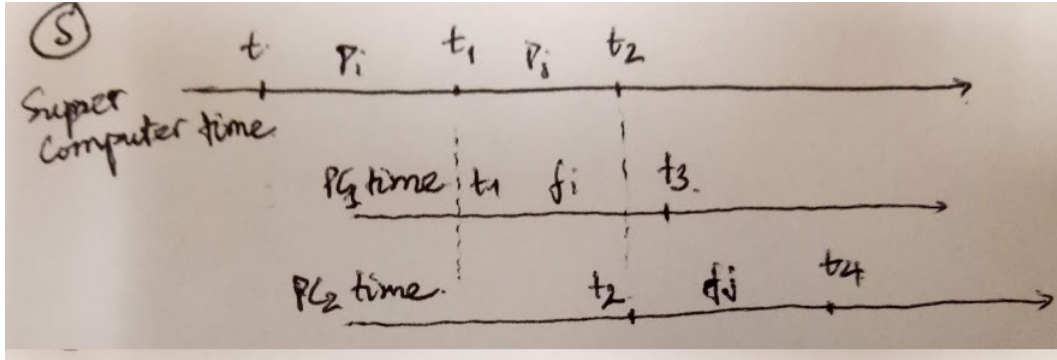 S
t Pi t1 Pj t2
Supper
computer time
PC1 time t1 fi t3
PC2 time t2 fj t4